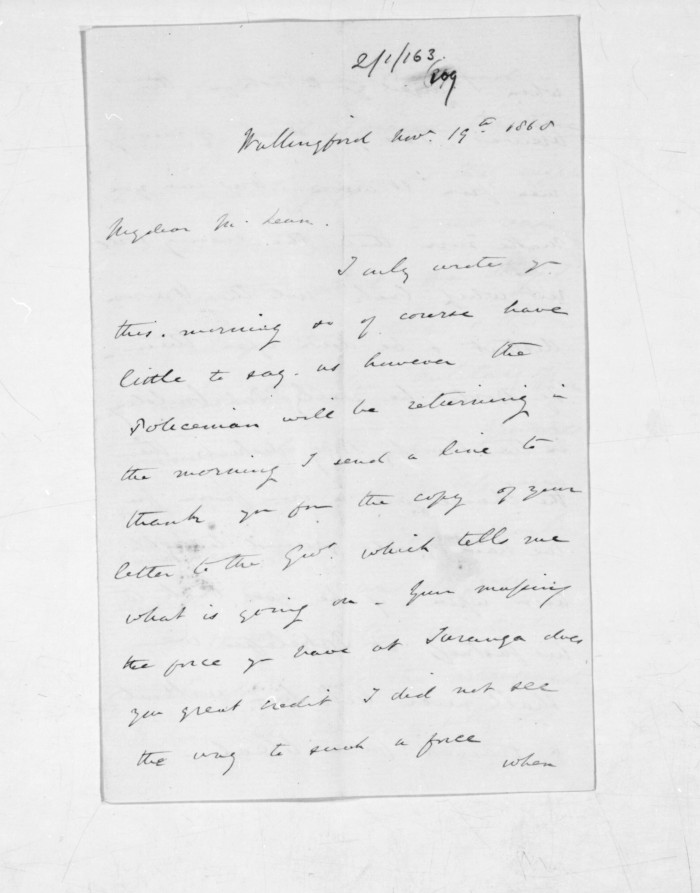 2/1/163.
209
Wallingford Novr. 19th 1868
My dear McLean.
I only wrote yr
this. morning so of course have
little to say. as however the
Policeman will be returning in
the morning I send a line to
thank you for the copy of your
letter. to the Govt. which tells me
what is going on - Your massing
the force yr have at Turanga does
you great credit I did not see
the way to such a force
when